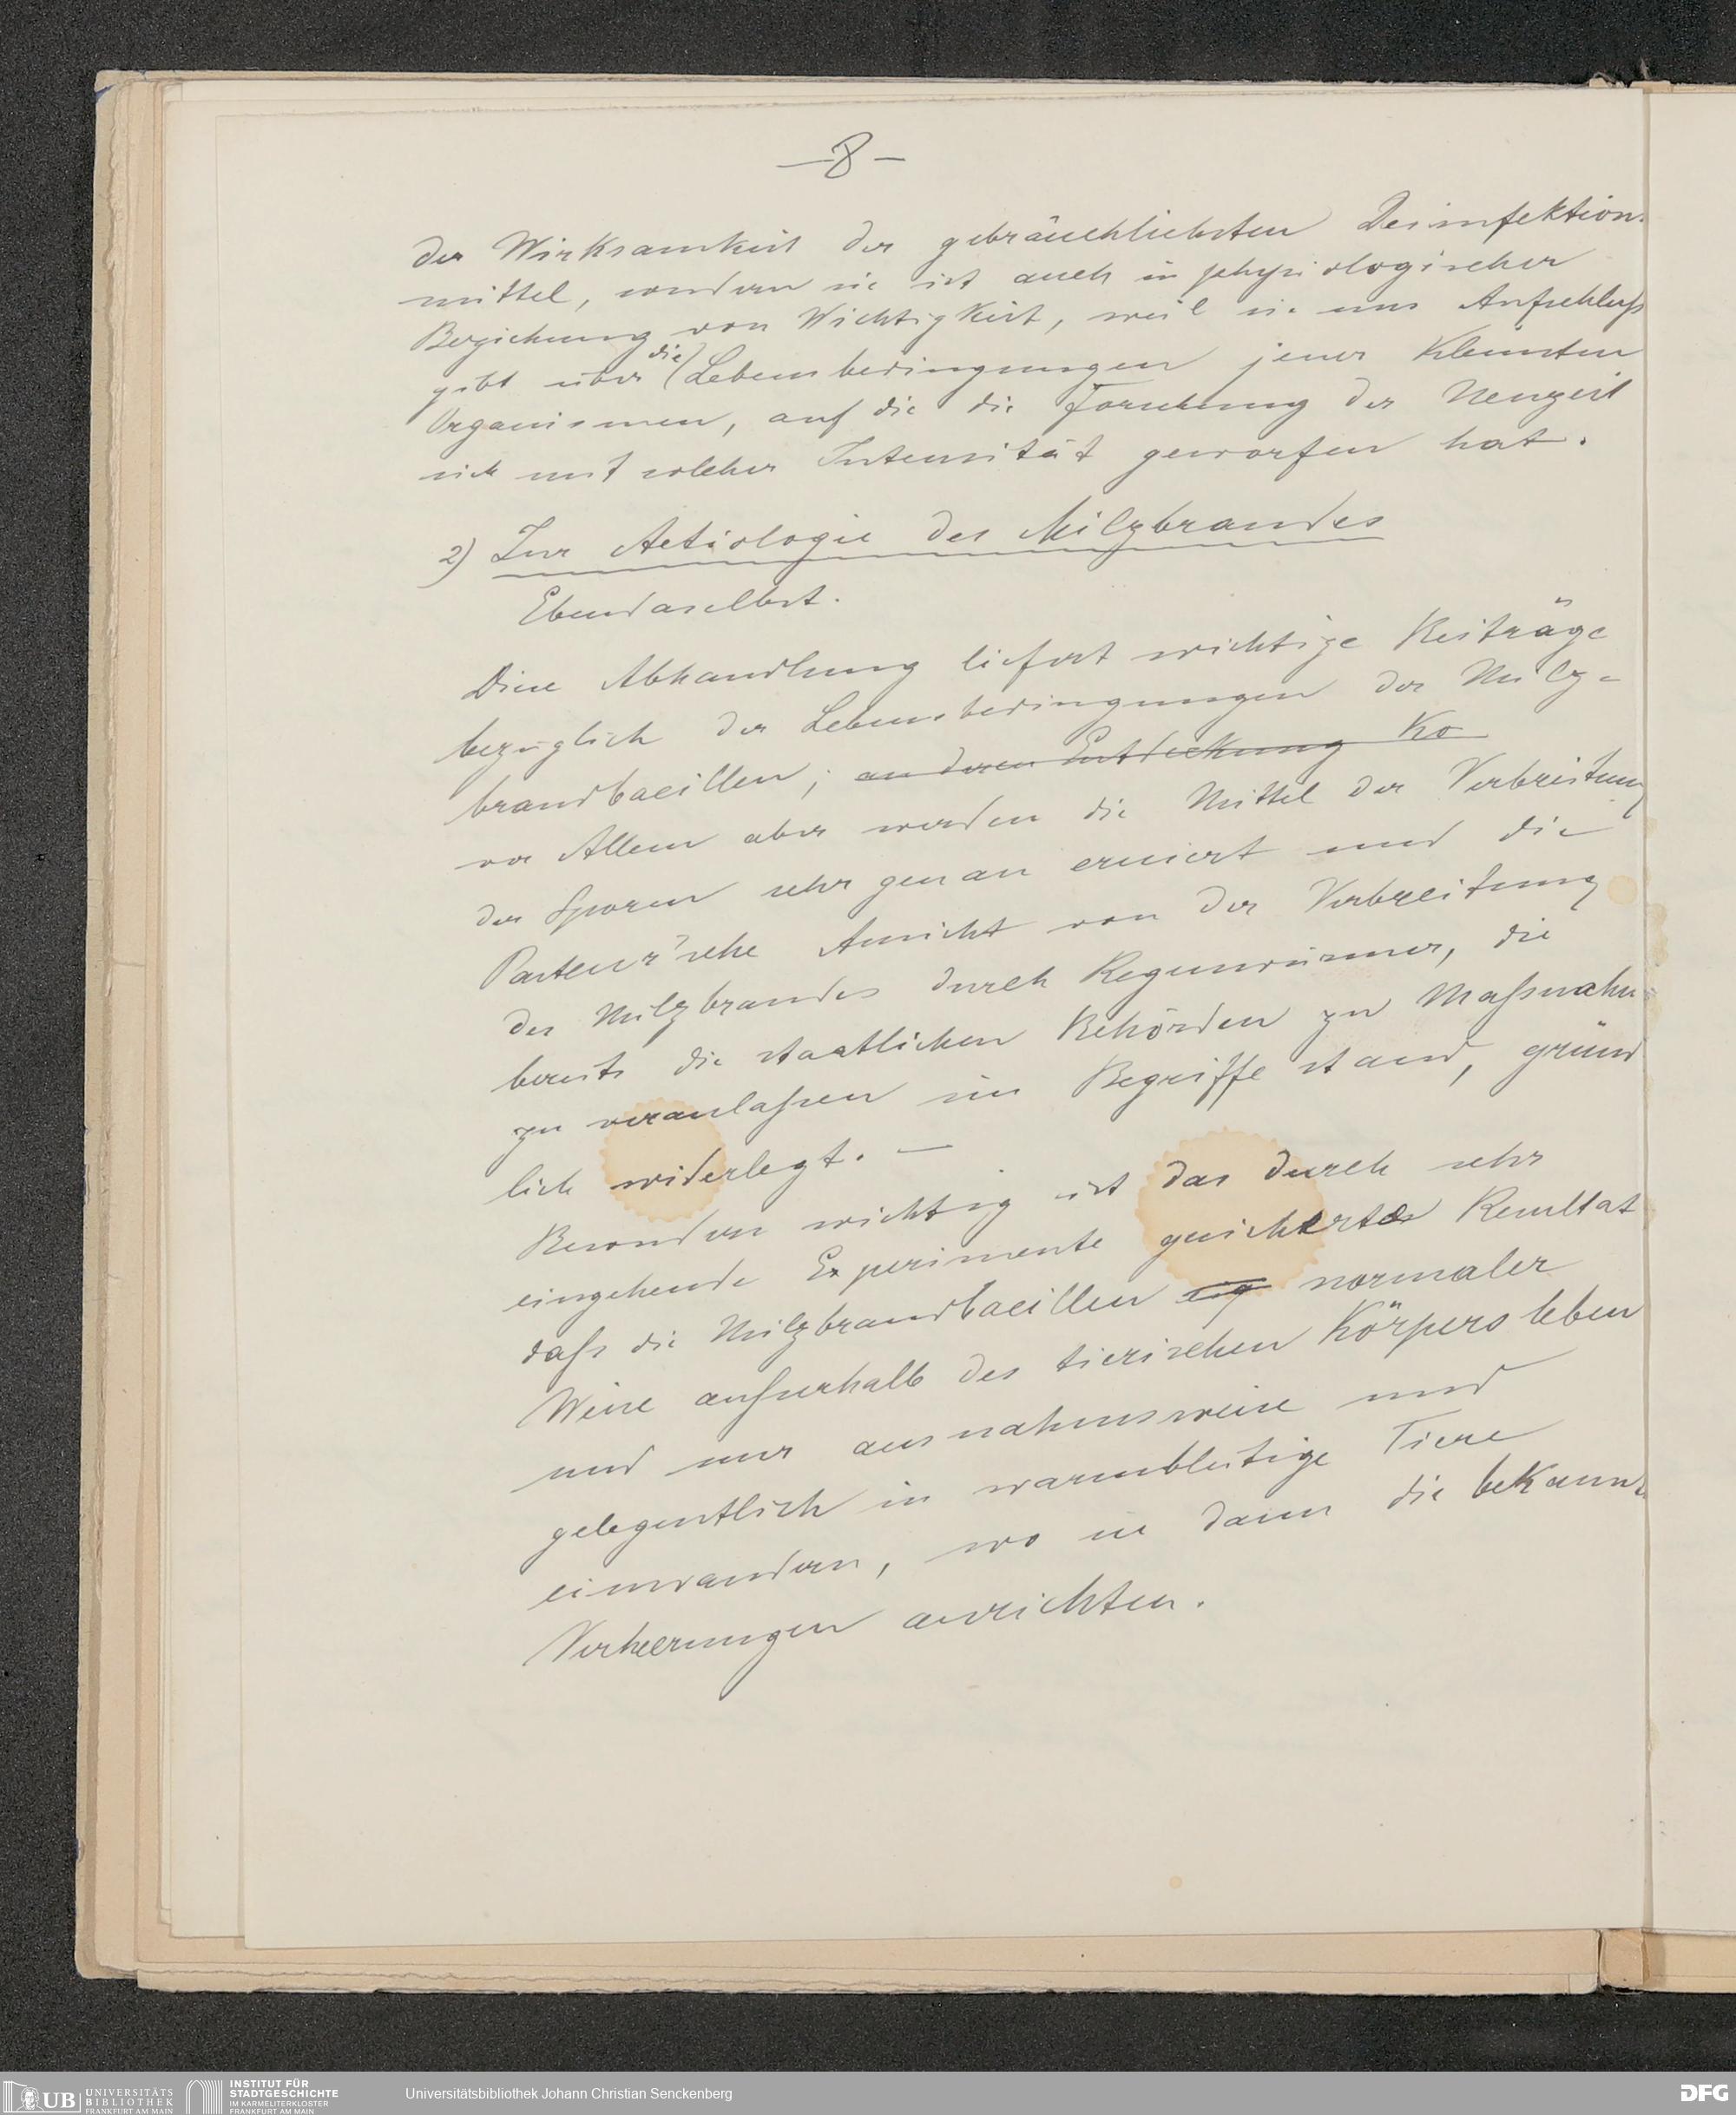 —8—
der Wirksamkeit der gebräuchlichsten Desinfektions-
mittel, sondern sie ist auch in physiologischer
Beziehung von Wichtigkeit, weil sie uns Aufschluß
die
gibt über Lebensbedingungen jener kleinsten
Organismen, auf die die Forschung der Neuzeit
sich mit solcher Intensität geworfen hat.
2) Zur Aetiologie des Milzbrandes
Ebendaselbst.
Diese Abhandlung liefert wichtige Beiträge
bezüglich der Lebensbedingungen der Milz-
brandbacillen; an deren Entdeckung Ko
vor Allem aber werden die Mittel der Verbreitung
der Sporen sehr genau eruiert und die
Pasteur'sche Ansicht von der Verbreitung
des Milzbrandes durch Regenwürmer, die
bereits die staatlichen Behörden zu Maßnahm
zu veranlaßen im Begriffe stand, gründ
lich widerlegt. —
Besonders wichtig ist das durch sehr
eingehende Experimente gesicherte Resultat
daß die Milzbrandbacillen eig normaler
Weise außerhalb des tierischen Körpers leben
und nur ausnahmsweise und
gelegentlich in warmblütige Tiere
einwandern, wo sie dann die bekannt
Verheerungen anrichten.
UB UNIVERSITÄTS
BIBLIOTHEK
FRANKFURT AM MAIN
INSTITUT FÜR
STADTGESCHICHTE
IM KARMELITERKLOSTER
FRANKFURT AM MAIN
Universitätsbibliothek Johann Christian Senckenberg
DFG